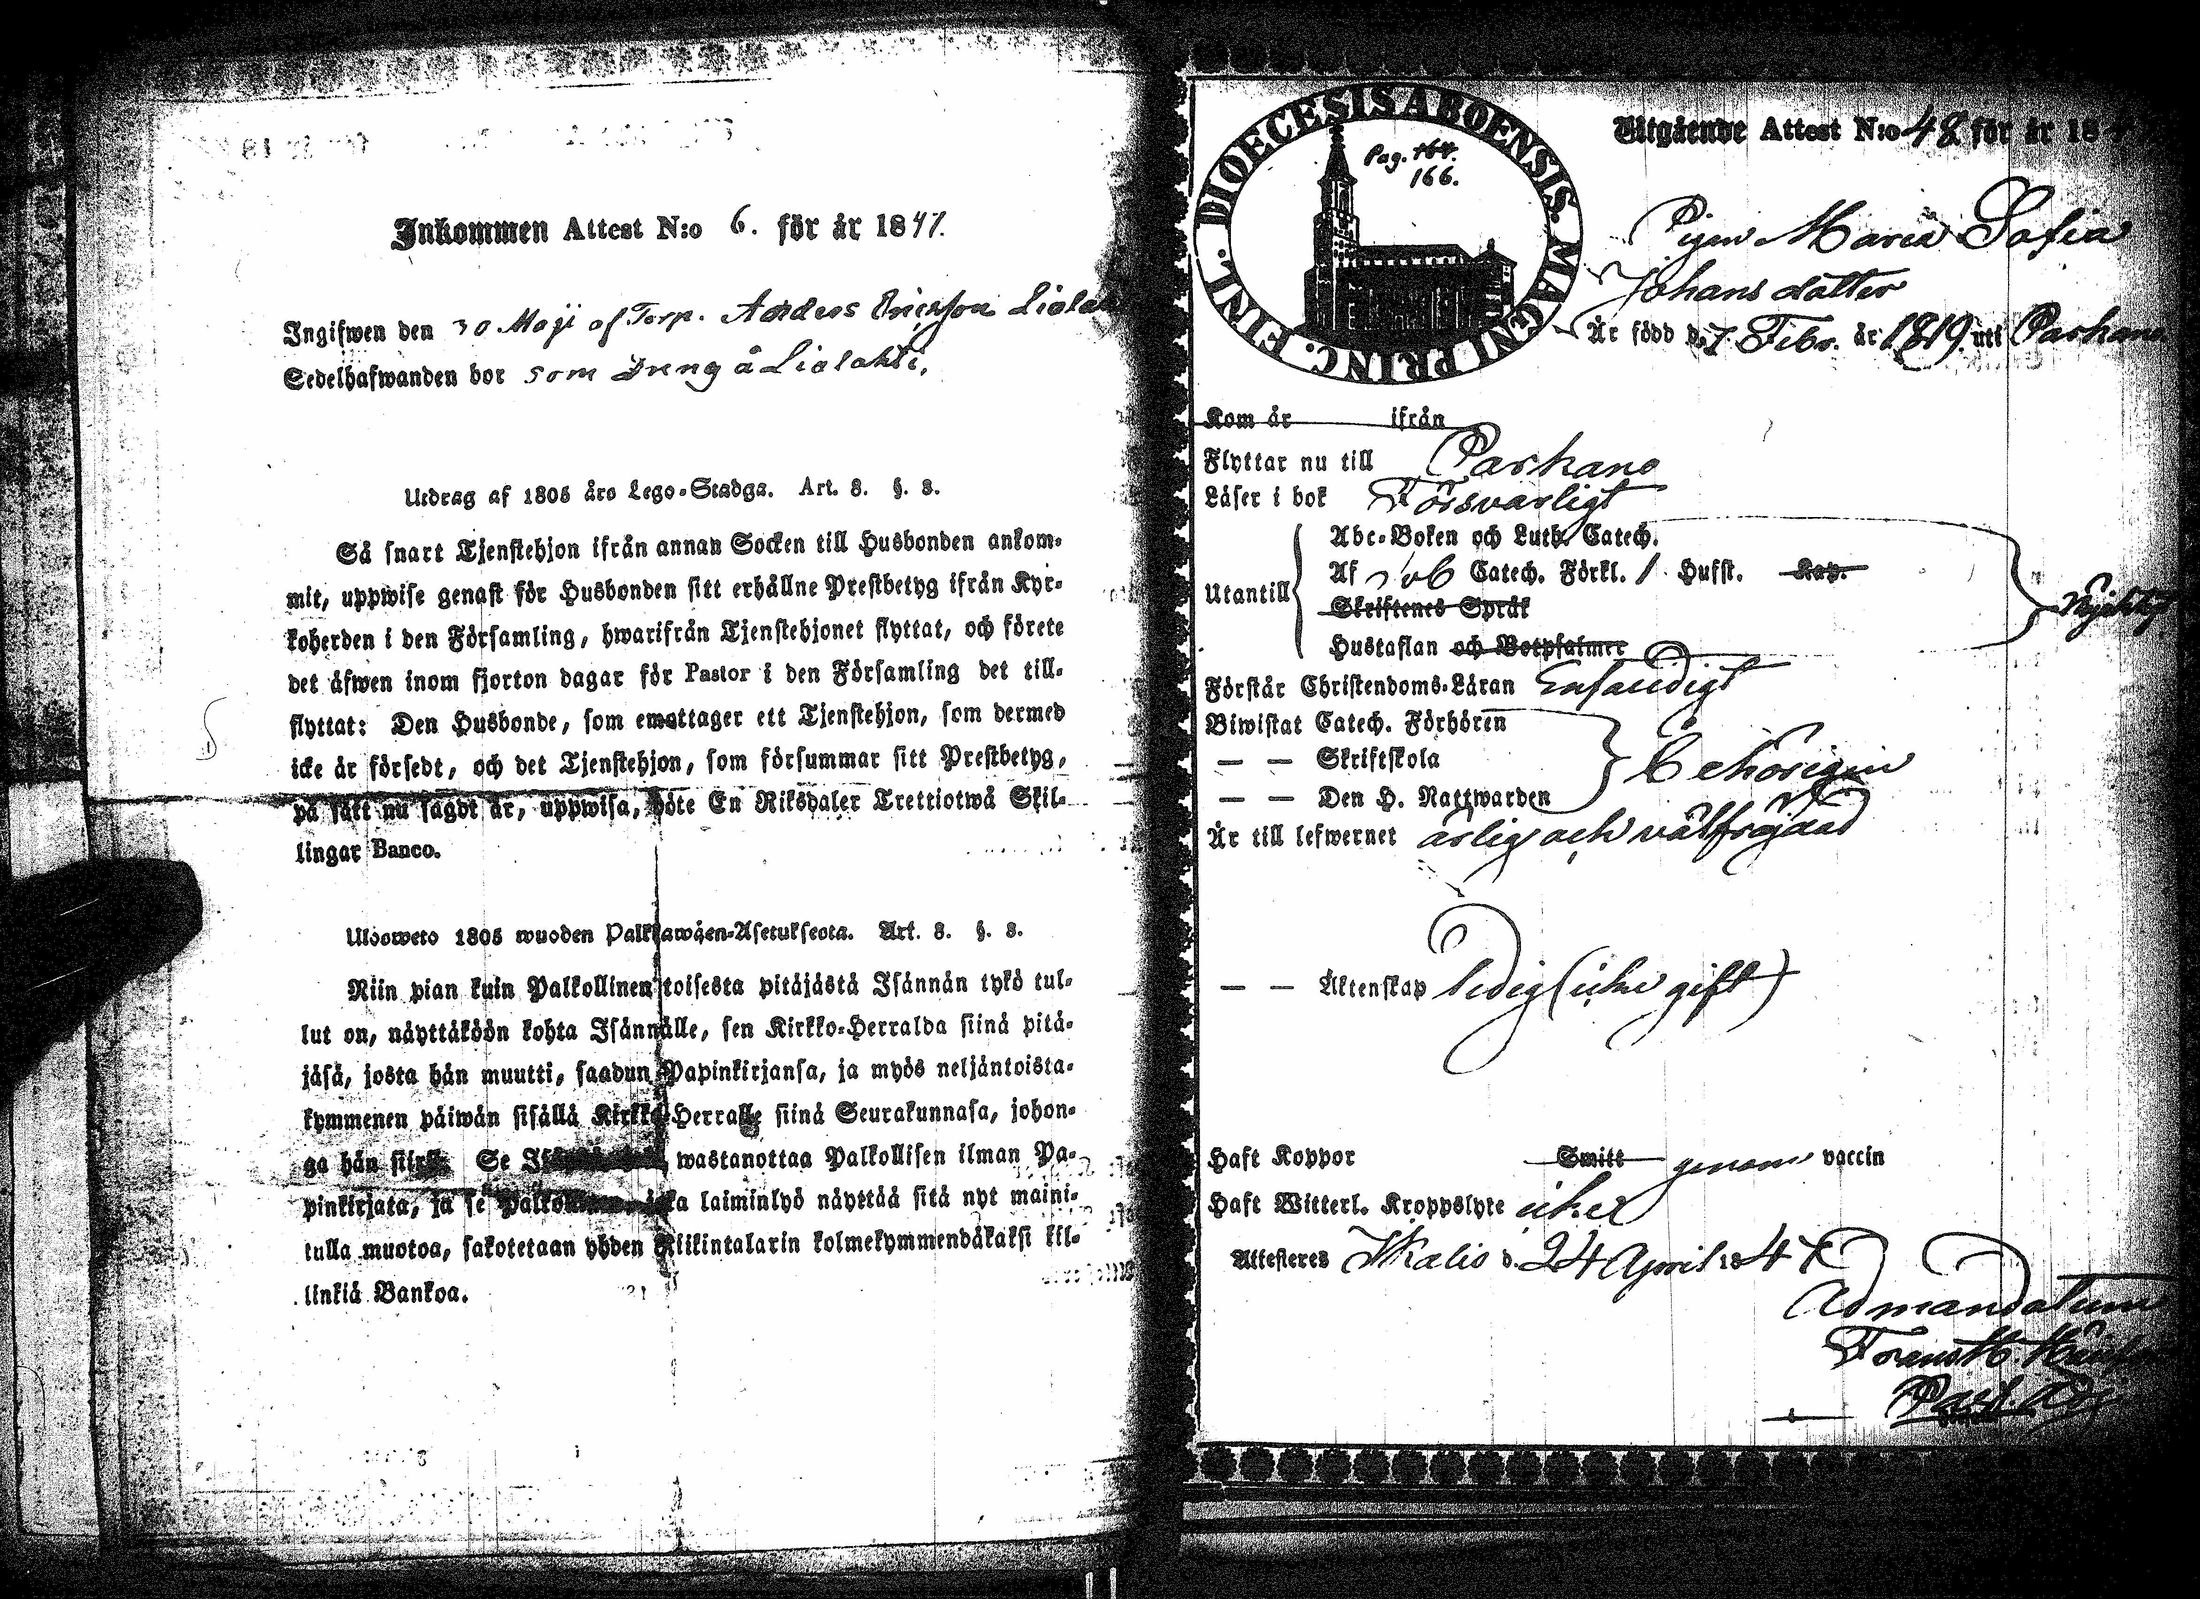 Inkommen Attest N:o 6. för år 1847.
Ingifwen den 30 Maji af Torp. Anders Ericsson
Sedelhafwanden bor som Inng å Lialahti,
Utdrag af 1805 års Lego-Stadga. Art. 8. §. 3.
Så snart Tjenstehjon ifrån annan Socken till Husbonden ankom-
mit, uppwise genast för Husbonden sitt erhållne Prestbetyg ifrån Kyr-
koherden i den Församling, hwarifrån Tjenstehjonet flyttat, och förete
det äfwen inom fjorton dagar för Pastor i den Församling det till-
flyttat: Den Husbonde, som emottager ett Tjenstehjon, som dermed
icke är försedt, och det Tjenstehjon, som försummar sitt Prestbetyg,
på sätt nu sagdt är, uppwisa, böte En Riksdaler Trettiotwå Skil-
lingar Banco.
Ulosweto 1805 wuoden Palkkawäen-Asetuksesta. Art. 8. §. 3.
Niin pian kuin Palkollinen toisesta pitäjästä Isännän tykö tul-
lut on, näyttäköön kohta Isännälle, sen Kirkko-Herralda siinä pitä-
jäsä, josta hän muutti, saadun Papinkirjansa, ja myös neljäntoista-
kymmenen päiwän sisällä Kirkko-Herralle siinä Seurakunnasa, johon-
ga hän siirsi. Se wastanottaa Palkollisen ilman Pa-
pinkirjata, ja se laiminlyö näyttää sitä nyt maini-
tulla muotoa, sakotetaan yhden Riikintalarin kolmekymmendäkaksi kil-
linkiä Bankoa.
DIOECESIS ABOENSIS. MAGNI PRINC. FINL.
Pag. 164.
166.
Utgående Attest N:o 48 för år 18
Pigan Maria Sofia
Johansdotter
Är född d. 7 Febr. år 1819 uti Parkano
Kom år ifrån
Flyttar nu till Parkano
Läser i bok Försvarligt
Utantill
Abc-Boken och Luth. Catech.
Af Catech. Förkl. / Hufst. Kap.
Skriftenes Språk
Hustaflan och Botpsalmer
Förstår Christendoms-Läran Enfaldigt
Biwistat Catech. Förhören
— — Skriftskola
Behörigen
— — Den H. Nattwarden
Är till lefwernet ärlig och välfrejdad
— — Äktenskap ledig (icke gift)
Haft Koppor Smitt genom vaccin
Haft Witterl. Kroppslyte icke
Attesteras Ikalis d. 24 April 1847
Ad mandatum
Past. Adj